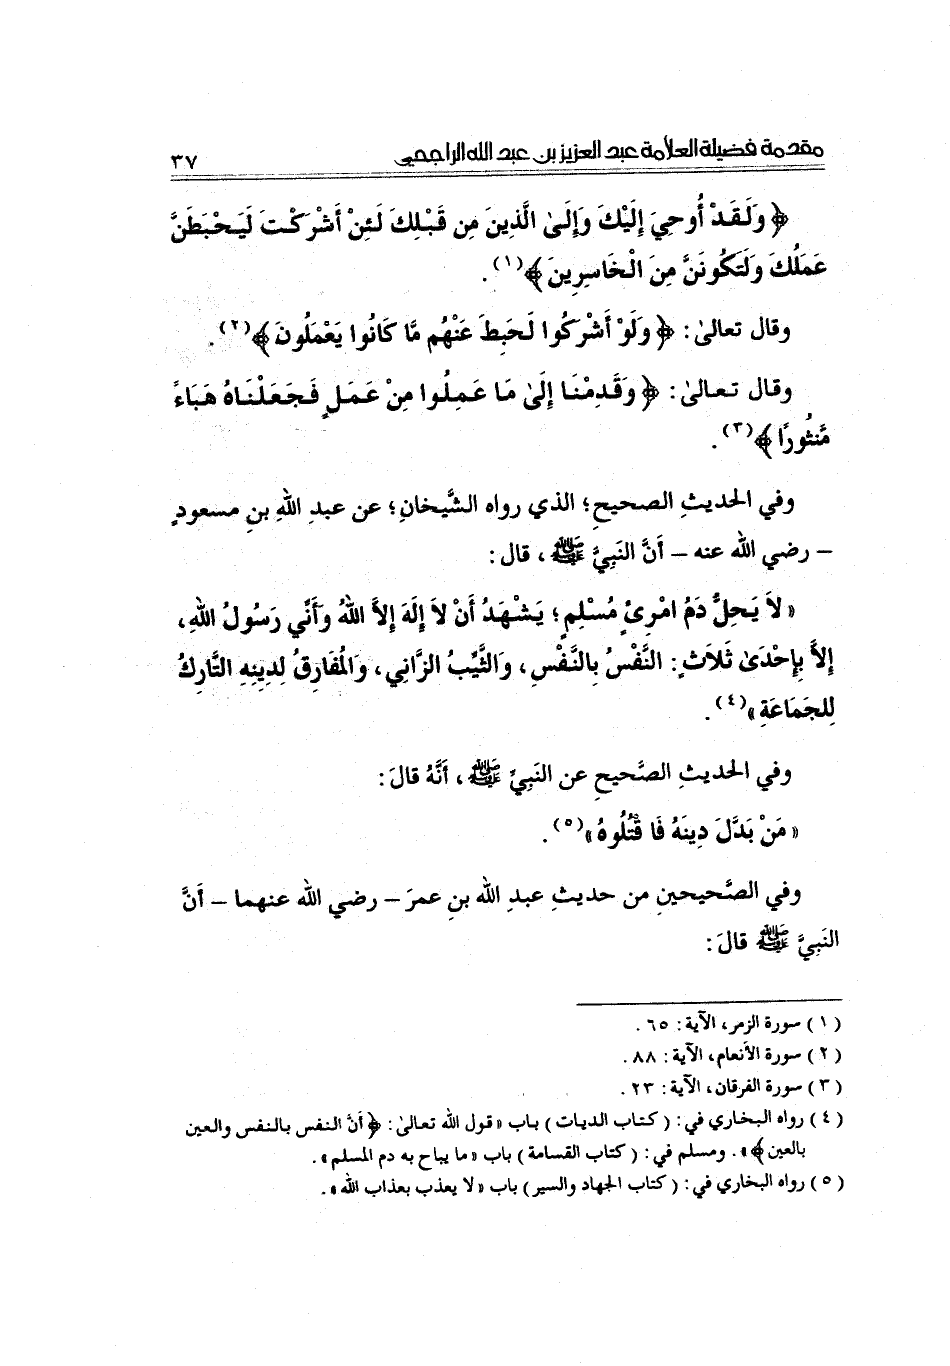 مقدمة فضيلة العلاَّمة عبد العزيز بن عبد الله الراجحي ٣٧
﴿ وَلَقَدْ أُوحِيَ إِلَيْكَ وَإِلَىٰ الَّذِينَ مِن قَبْلِكَ لَئِنْ أَشْرَكْتَ لَيَحْبَطَنَّ
عَمَلُكَ وَلَتَكُونَنَّ مِنَ الْخَاسِرِينَ ﴾(١) .
وقال تعالىٰ : ﴿ وَلَوْ أَشْرَكُوا لَحَبِطَ عَنْهُم مَّا كَانُوا يَعْمَلُونَ ﴾(٢) .
وقال تعالىٰ : ﴿ وَقَدِمْنَا إِلَىٰ مَا عَمِلُوا مِنْ عَمَلٍ فَجَعَلْنَاهُ هَبَاءً
مَّنثُورًا ﴾(٣) .
وفي الحديثِ الصحيحِ ؛ الذي رواه الشَّيخانِ ؛ عن عبدِ اللهِ بنِ مسعودٍ
– رضي الله عنه – أنَّ النَبِيَّ ﷺ ، قال :
« لاَ يَحِلُّ دَمُ امْرِئٍ مُسْلِمٍ ؛ يَشْهَدُ أَنْ لاَ إِلَهَ إِلاَّ اللهُ وَأَنِّي رَسُولُ اللهِ ،
إِلاَّ بِإِحْدَىٰ ثَلاَثٍ : النَّفْسُ بِالنَّفْسِ ، وَالثَّيِّبُ الزَّانِي ، وَالْمُفَارِقُ لِدِينِهِ التَّارِكُ
لِلجَمَاعَةِ »(٤) .
وفي الحديثِ الصَّحيحِ عن النَبِيِّ ﷺ ، أَنَّهُ قالَ :
« مَنْ بَدَّلَ دِينَهُ فَا قْتُلُوهُ »(٥) .
وفي الصَّحيحينِ من حديثِ عبدِ الله بنِ عمرَ – رضي الله عنهما – أنَّ
النَبِيَّ ﷺ قالَ :
( ١ ) سورة الزمر ، الآية : ٦٥ .
( ٢ ) سورة الأنعام ، الآية : ٨٨ .
( ٣ ) سورة الفرقان ، الآية : ٢٣ .
( ٤ ) رواه البخاري في : ( كتاب الديات ) باب « قول الله تعالىٰ : ﴿ أنَّ النفس بالنفس والعين
بالعين ﴾ » . ومسلم في : ( كتاب القسامة ) باب « ما يباح به دم المسلم » .
( ٥ ) رواه البخاري في : ( كتاب الجهاد والسير ) باب « لا يعذب بعذاب الله » .